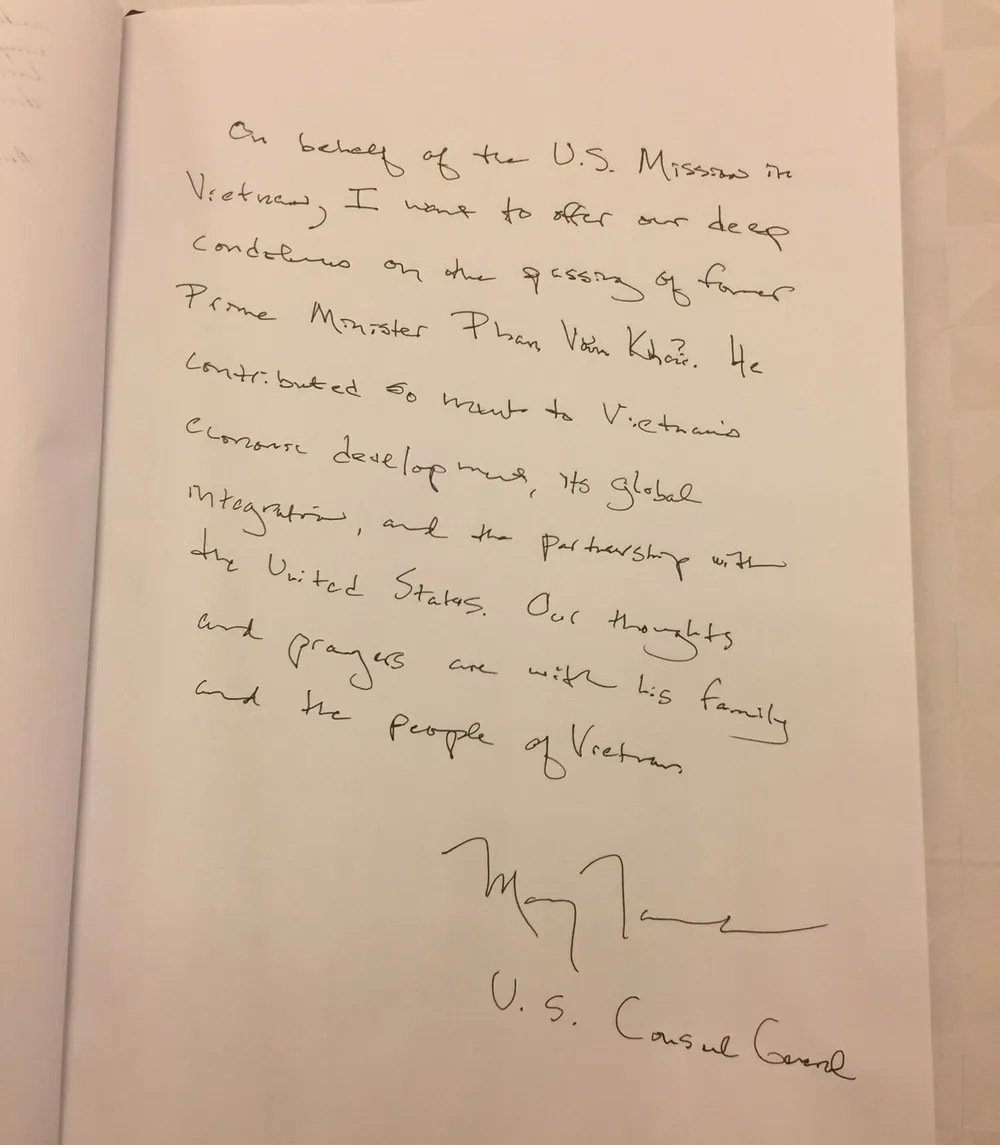 On behalf of the U.S. Mission in
Vietnam, I want to offer our deep
condolences on the passing of former
Prime Minister Phan Văn Khải. He
contributed so much to Vietnam's
economic development, its global
integration, and the partnership with
the United States. Our thoughts
and prayers are with his family
and the people of Vietnam
Mary
U.S. Consul General